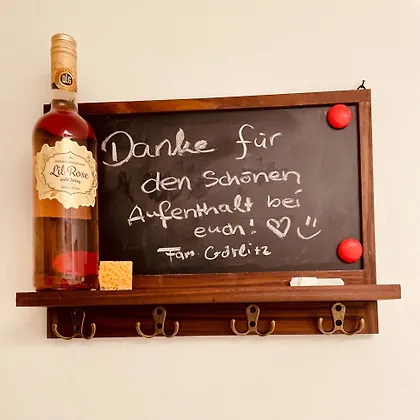 Lil Rose
Danke für
den Schönen
Aufenthalt bei
euch!
Fam. Görlitz